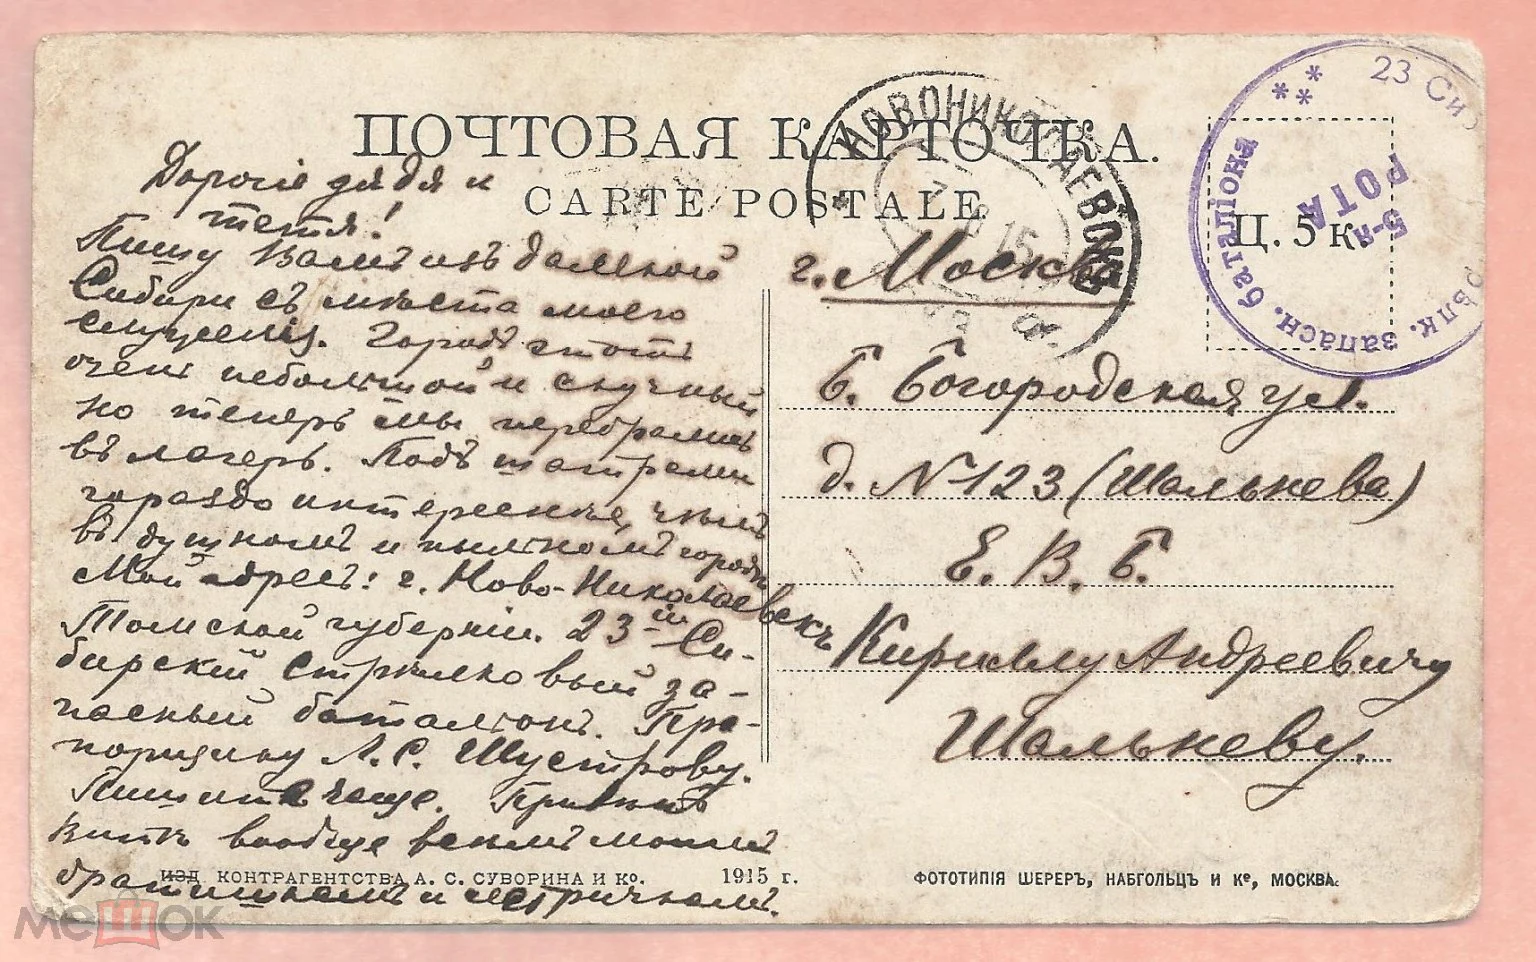 ПОЧТОВАЯ КАРТОЧКА.
CARTE POSTALE
НОВОНИКОЛАЕВСКЪ
15
23 Си
рѣлк. запасн. баталіона
5-я
РОТА
Ц. 5 к.
Дорогіе дядя и
тетя!
Пишу Вамъ изъ далекой
Сибири съ мѣста моего
служенія. Городъ этотъ
очень небольшой и скучный
но теперь мы перебрались
въ лагерь. Подъ шатрами
гораздо интереснѣе, чѣмъ
въ душномъ и пыльномъ городѣ
Мой адресъ: г. Ново-Николаевскъ
Томской губерніи. 23-ій Си-
бирскій Стрѣлковый за-
пасный баталіонъ. Пра-
порщику Л. С. Шустрову.
Пишите чаще. Привѣтъ
Витѣ вообще всѣмъ моимъ
братишкамъ и сестричкамъ.
г. Москва
Б. Богородская ул.
д. № 123 (Шалькева)
Е. В. Б.
Кириллу Андреевичу
Шалькеву.
ИЗД. КОНТРАГЕНТСТВА А. С. СУВОРИНА И Ко. 1915 г.
ФОТОТИПІЯ ШЕРЕРЪ, НАБГОЛЬЦЪ И Ке, МОСКВА.
мешок